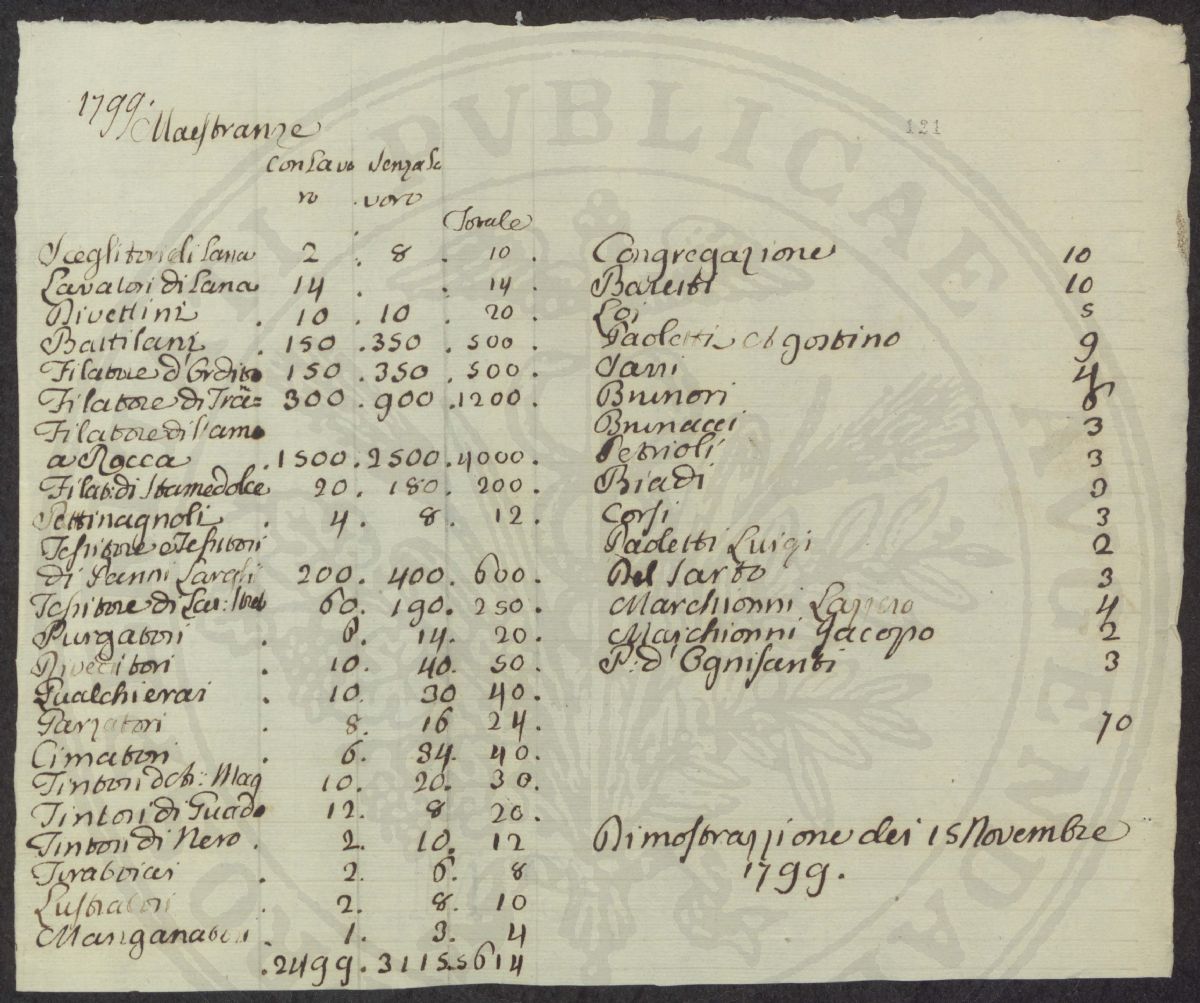 1799.
Maestranze
Con Lavo
ro
Senza La
voro
Totale
Sceglitori di Lana 2 . 8 . 10 .
Lavatori di Lana 14 . . 14 .
Divettini . 10 . 10 . 20 .
Battilani . 150 . 350 . 500 .
Filatore d'Ordito 150 . 350 . 500 .
Filatore di Trã= 300 . 900 . 1200 .
Filatore di Stame
a Rocca . 1500 . 2500 . 4000 .
Filat: di Stame dolce 20 . 180 . 200 .
Pettinagnoli . 4 . 8 . 12 .
Tessitore e Tessitori
di Panni Larghi 200 . 400 . 600 .
Tessitore di Lav: Stret 60 . 190 . 250 .
Purgatori . 6 . 14 . 20 .
Riveditori . 10 . 40 . 50 .
Gualchierai . 10 . 30 40 .
Garzatori . 8 . 16 24 .
Cimatori . 6 . 34 . 40 .
Tintori d'Art: Mag 10 . 20 . 30 .
Tintori di Guado 12 . 8 20 .
Tintori di Nero . 2 . 10 . 12
Tiratoiai . 2 . 6 . 8
Lustratori . 2 . 8 . 10
Manganatori . 1 . 3 . 4
. 2499 . 3115 . 5614
121
Congregazione 10
Baretti 10
Loi 5
Paoletti Agostino 9
Sarri 4
Brunori 6
Brunacci 3
Petrioli 3
Biadi 3
Corsi 3
Paoletti Luigi 2
Del Sarto 3
Marchionni Lazzero 4
Marchionni Jacopo 2
P: d'Ognisanti 3
70
Dimostrazzione dei 15 Novembre
1799.